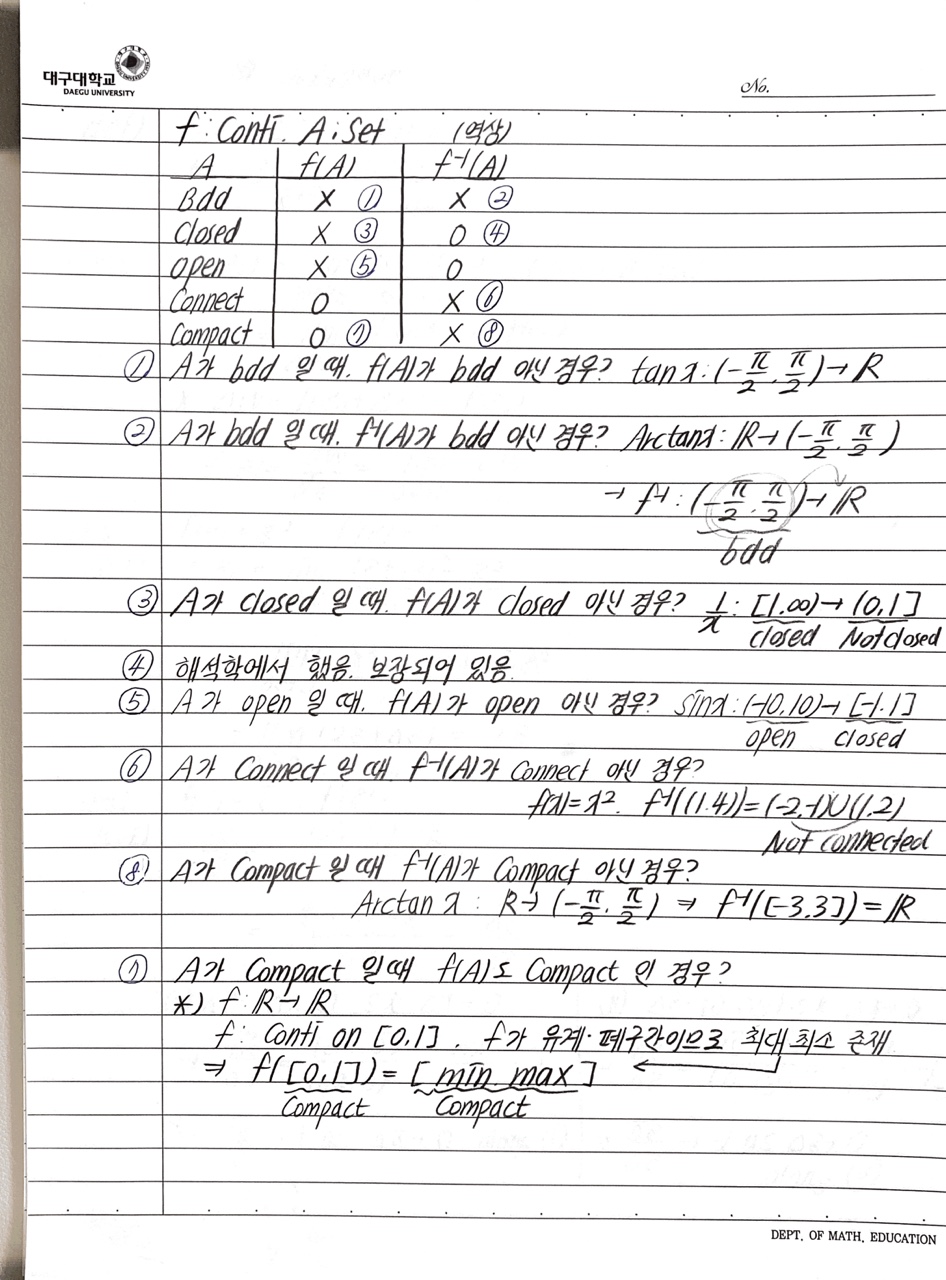 대구대학교
DAEGU UNIVERSITY
No.
f : Conti. A : Set (역상)
A f(A) f⁻¹(A)
Bdd X ① X ②
Closed X ③ O ④
open X ⑤ O
Connect O X ⑥
Compact O ⑦ X ⑧
① A가 bdd 일 때. f(A)가 bdd 아닌 경우? tan x : (-π/2, π/2) → ℝ
② A가 bdd 일 때. f⁻¹(A)가 bdd 아닌 경우? Arctan x : ℝ → (-π/2, π/2)
→ f⁻¹ : (-π/2, π/2) → ℝ
bdd
③ A가 closed 일 때. f(A)가 closed 아닌 경우? 1/x : [1,∞) → (0,1]
closed Not closed
④ 해석학에서 했음. 보장되어 있음.
⑤ A가 open 일 때. f(A)가 open 아닌 경우? sin x : (-10,10) → [-1,1]
open closed
⑥ A가 Connect 일 때. f⁻¹(A)가 Connect 아닌 경우?
f(x)=x². f⁻¹((1,4))=(-2,-1)∪(1,2)
Not connected
⑧ A가 Compact 일 때 f⁻¹(A)가 Compact 아닌 경우?
Arctan x : R → (-π/2, π/2) ⇒ f⁻¹([-3,3]) = ℝ
⑦ A가 Compact 일 때 f(A)도 Compact 인 경우?
*) f : ℝ → ℝ
f : Conti on [0,1]. f가 유계·폐구간이므로 최대 최소 존재
⇒ f([0,1]) = [min, max] ←
Compact Compact
DEPT. OF MATH. EDUCATION